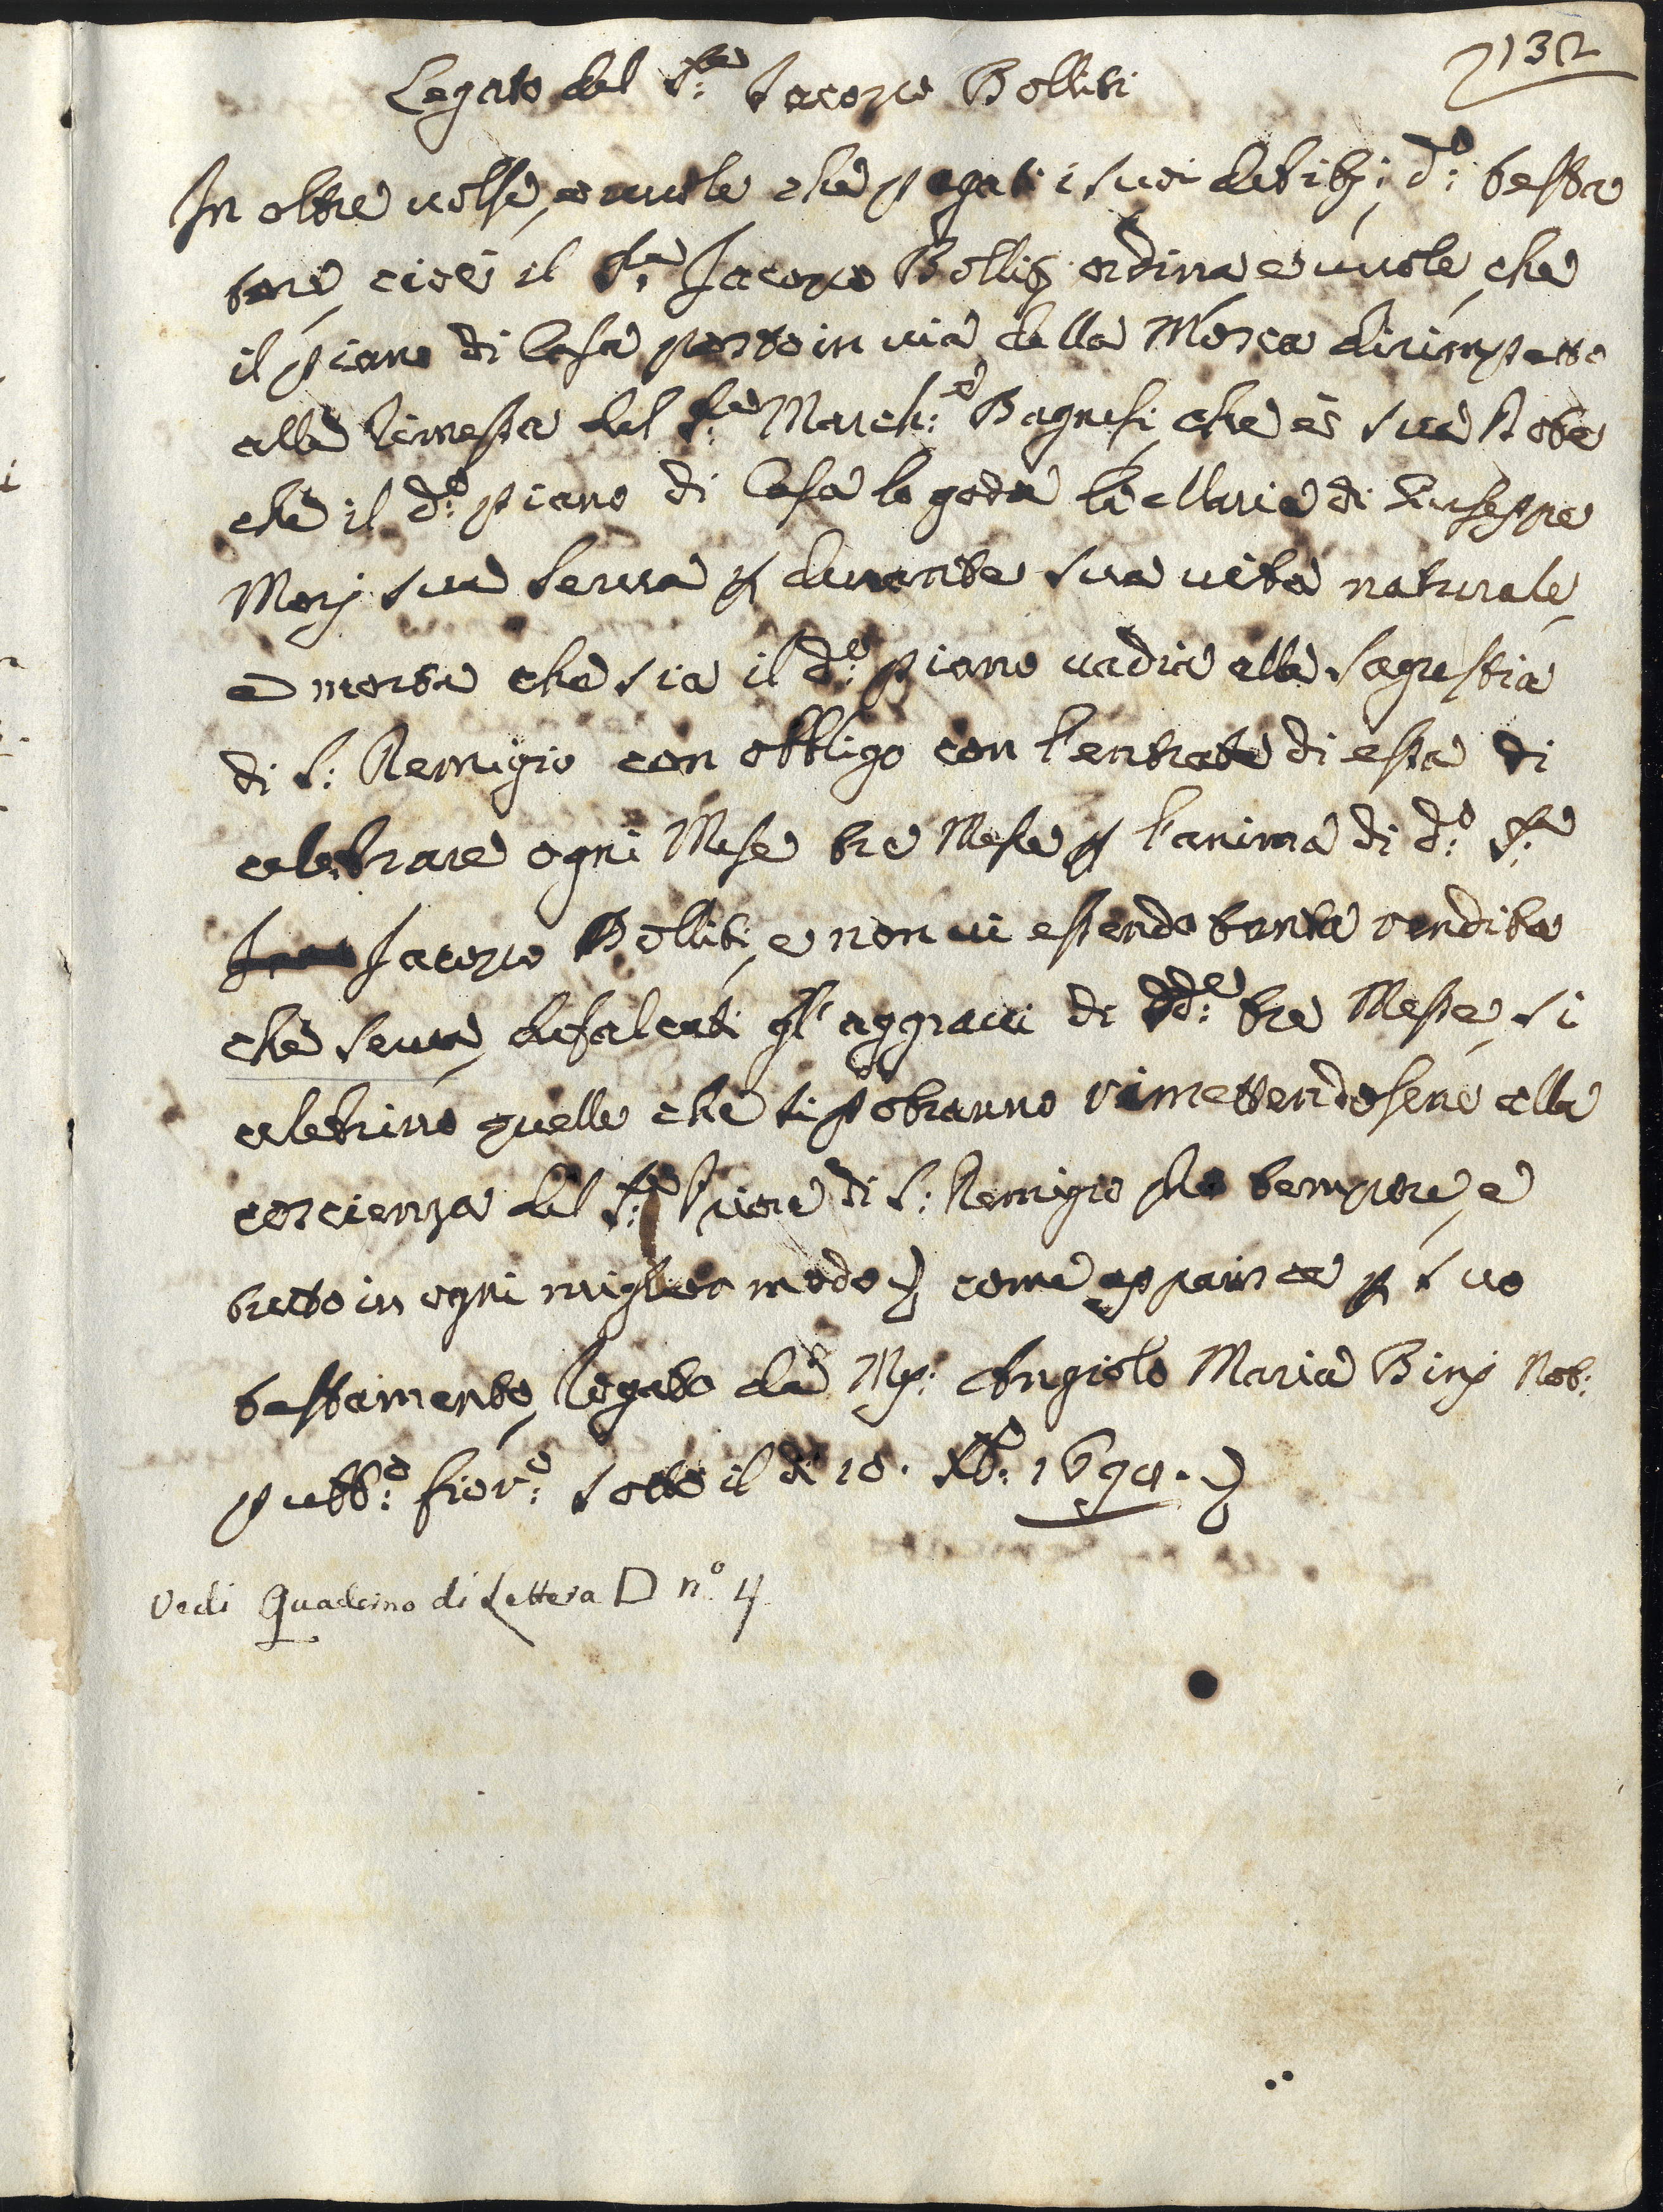 132
Legato del S.re Jacopo Bolliti
In oltre volse, e vuole che pagati i suoi debiti; d.o testa
tore, cioè il S.re Jacopo Bolliti ordina e vuole, che
il piano di Casa posto in via della Mosca dirimpetto
alla rimessa del S.re March:e Bagnesi, che è sua
che il d.o piano di Casa lo goda la Maria di Giuseppe
Morj sua serva p durante sua vita naturale,
e morta che sia il d.o piano vadia alla Sagrestia
di S: Remigio con obbligo con l'entrate di essa di
celebrare ogni Mese tre Messe p l'anima di d.o S.re
Jacopo Bolliti, e non vi essendo tanta rendita
che serva, defalcati gl'aggravi di dd.e tre Messe, si
celebrino quelle che si potranno rimettendosene alla
coscienza del S.re Priore di S: Remigio pro tempore, e
tutto in ogni miglior modo) come apparisce p suo
testamento, rogato da Mr: Angiolo Maria Binj Not:
pubb:o fior:o sotto il dì 10. Xb.re
Vedi Quaderno di Lettera D n.o 4